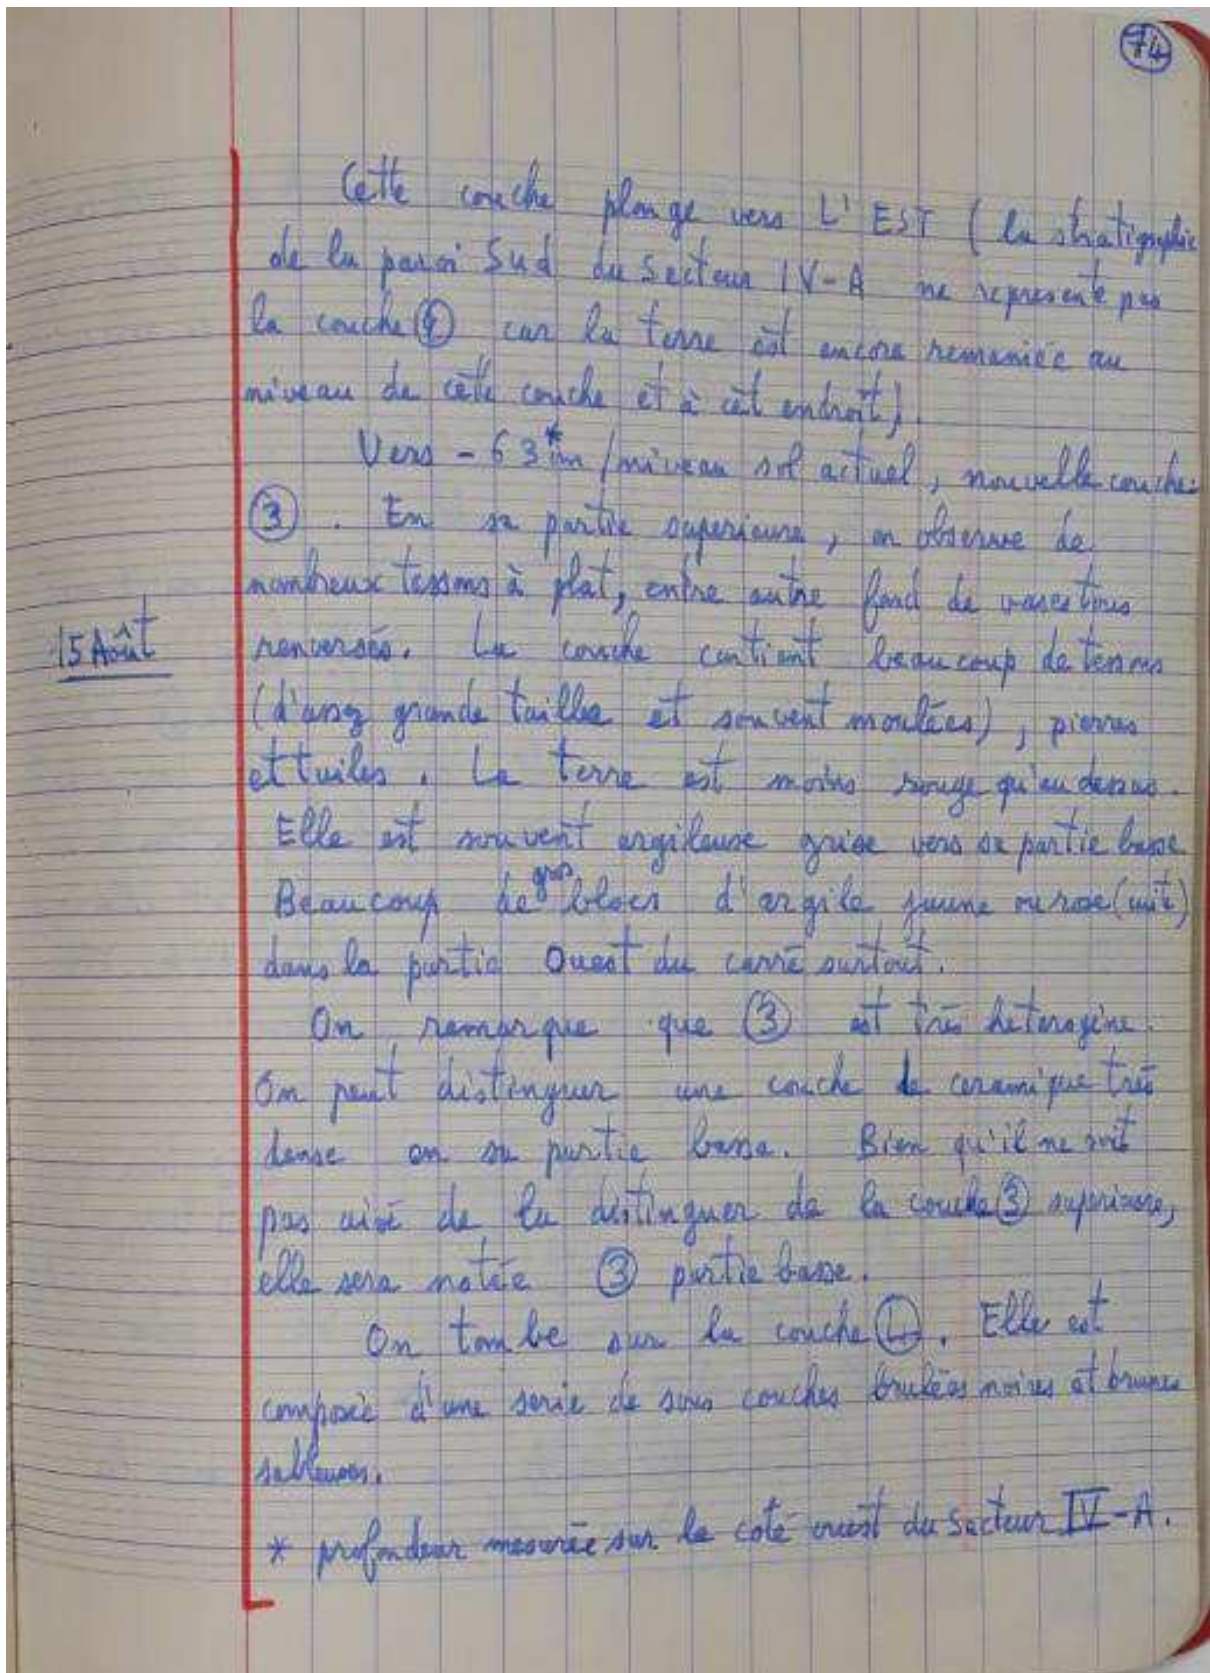 74
Cette couche plonge vers L'EST (la stratigraphie
de la paroi Sud du Secteur IV-A ne represente pas
la couche car la terre est encore remaniée au
niveau de cette couche et à cet endroit).
Vers - 63* cm /niveau sol actuel, nouvelle couche:
③. En sa partie superieure, on observe de
nombreux tessons à plat, entre autre fond de vases tous
15 Août
renversés. La couche contient beaucoup de tessons
(d'assez grande taille et souvent moulées), pierres
et tuiles. La terre est moins rouge qu'au dessus.
Elle est souvent argileuse grise vers sa partie basse
Beaucoup de gros blocs d'argile jaune ou rose (cuite)
dans la partie Ouest du carré surtout.
On remarque que ③ est très heterogène.
On peut distinguer une couche de ceramique très
dense en sa partie basse. Bien qu'il ne soit
pas aisé de la distinguer de la couche ③ superieure,
elle sera notée ③ partie basse.
On tombe sur la couche ④. Elle est
composée d'une serie de sous couches brulées noires et brunes
sableuses.
* profondeur mesurée sur le coté ouest du Secteur IV-A.